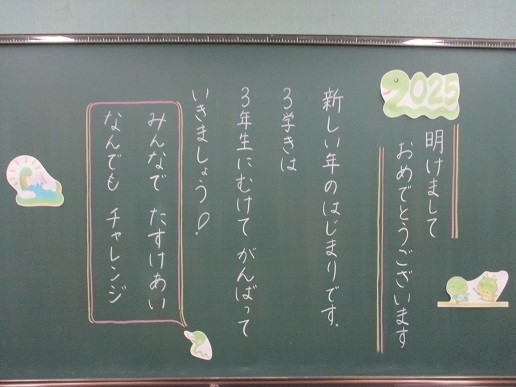 2025
明けまして
おめでとうございます
新しい年のはじまりです.
3学きは
3年生にむけて がんばって
いきましょう!
みんなで たすけあい
なんでも チャレンジ